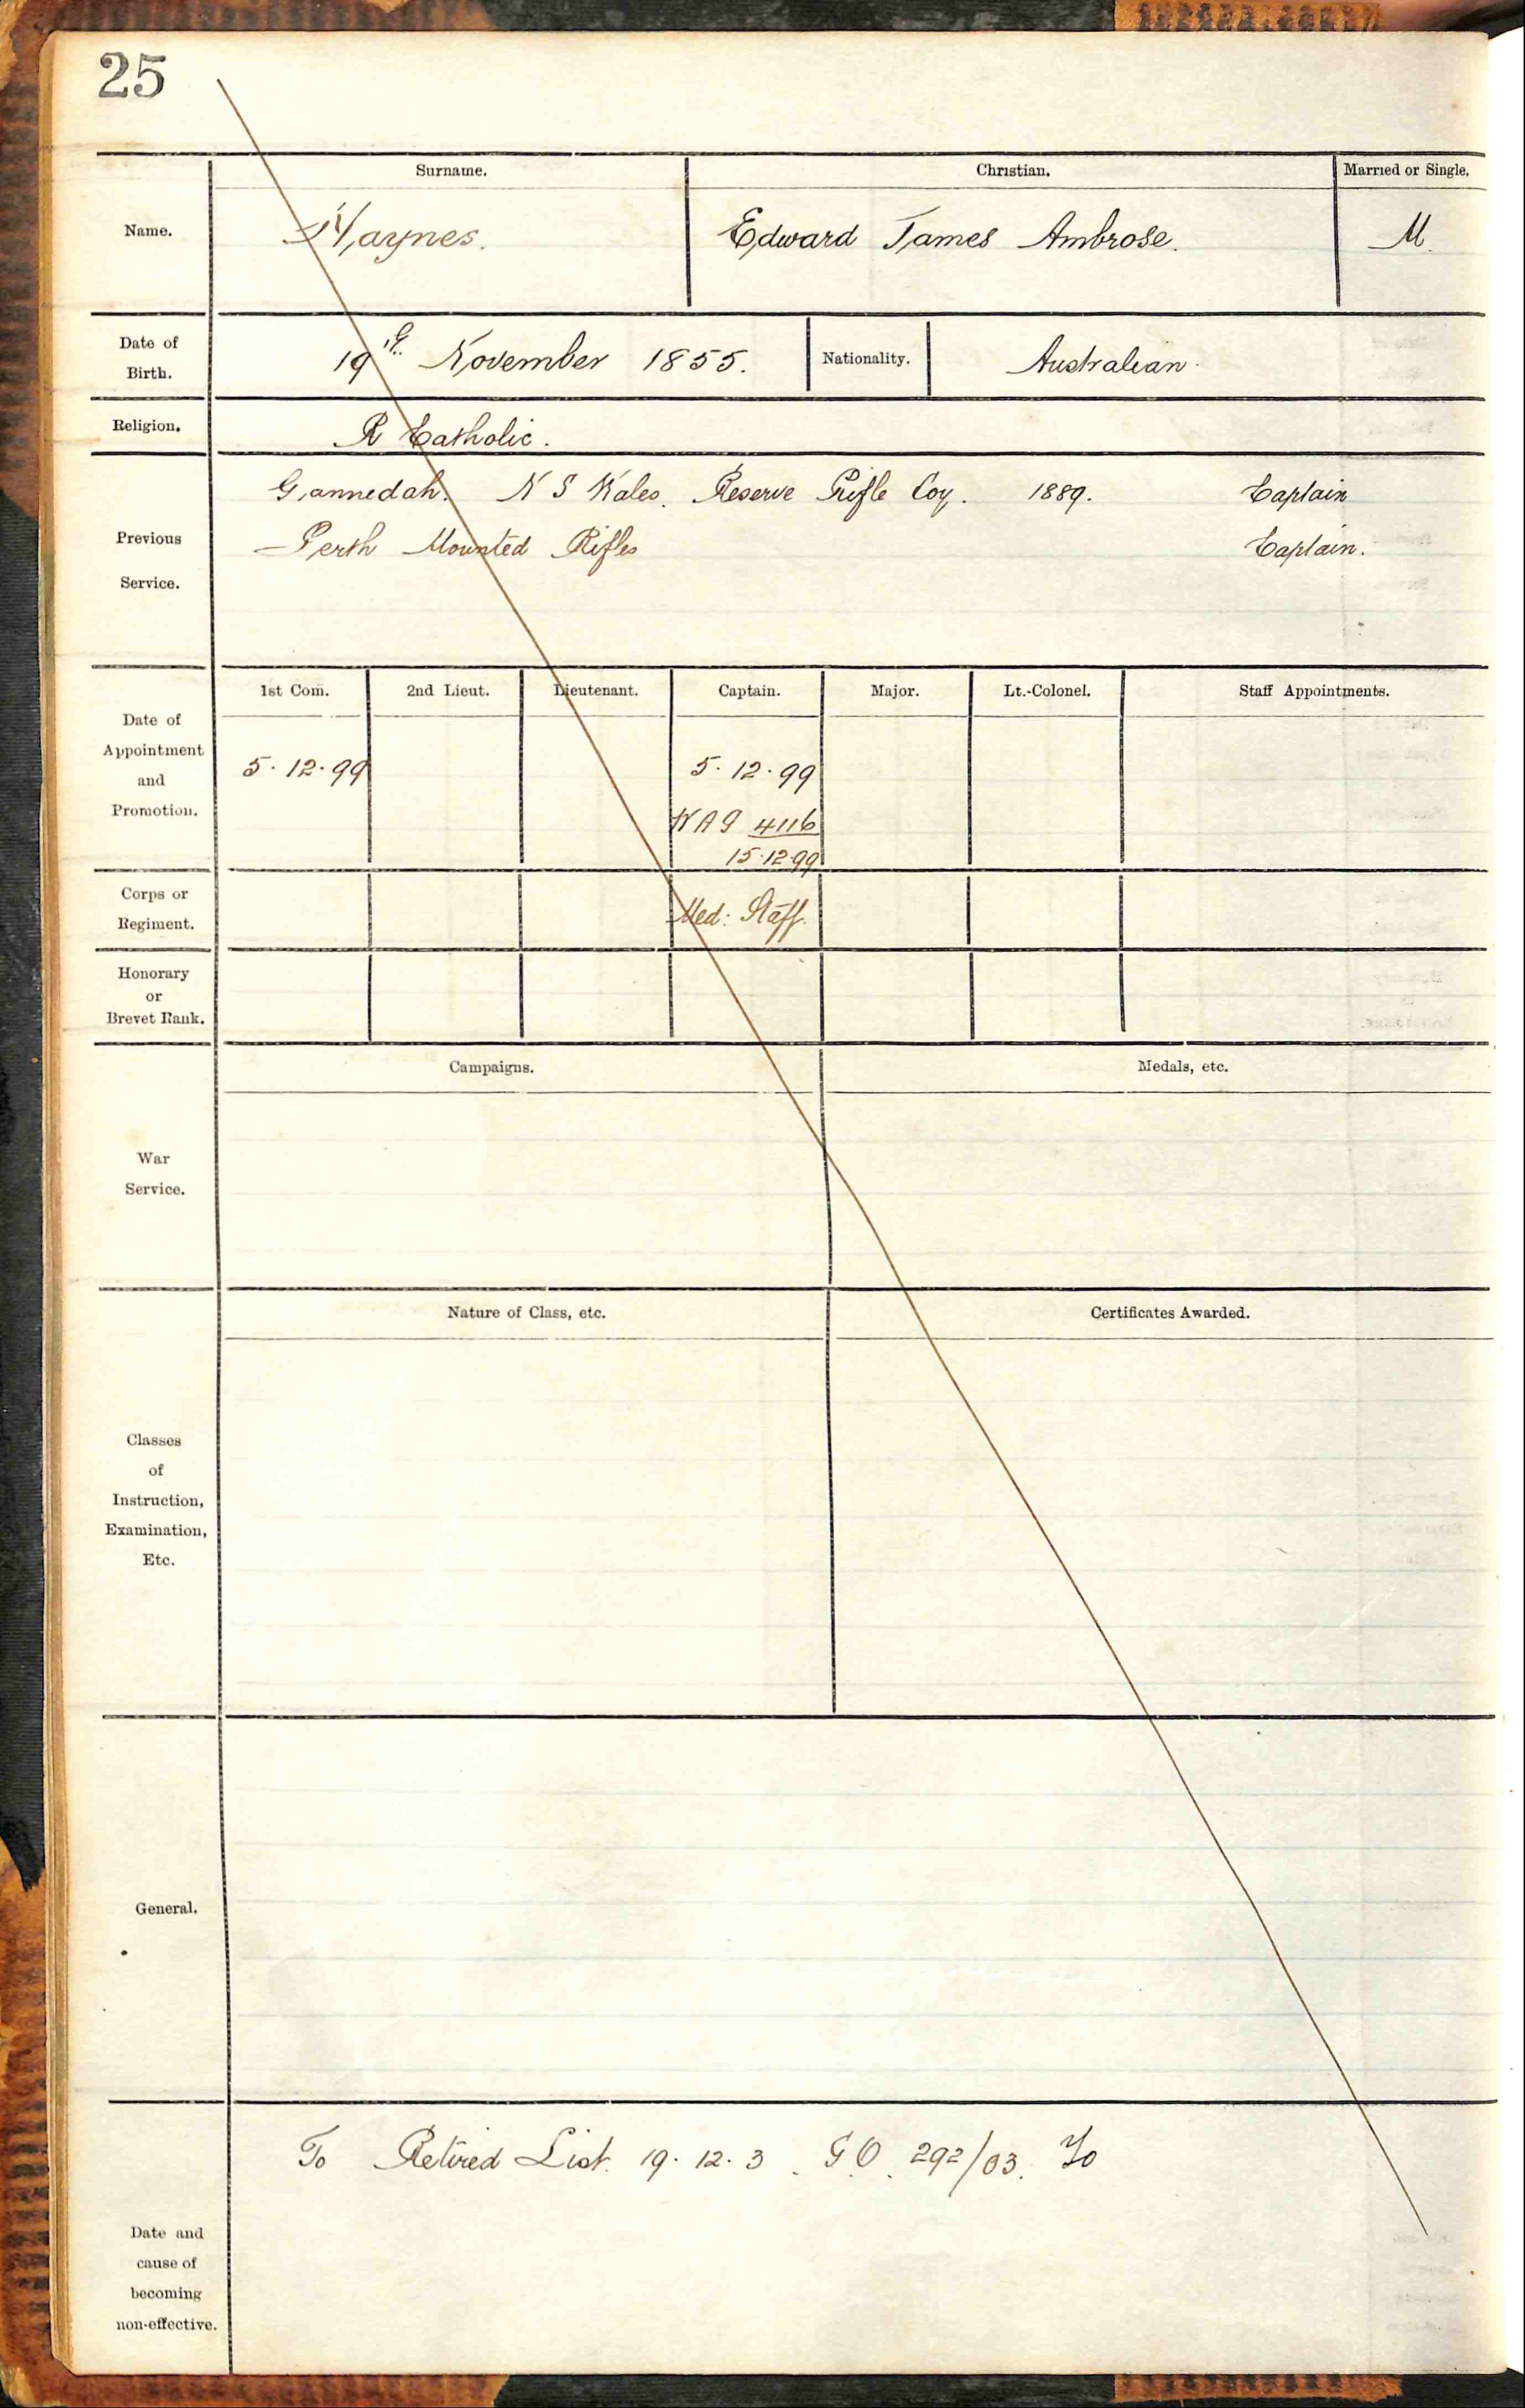 25
Surname.
Christian.
Married or Single.
Name.
Haynes.
Edward James Ambrose.
M.
Date of
Birth.
19th November 1855.
Nationality.
Australian.
Religion.
R Catholic.
Gunnedah. N S Wales. Reserve Rifle Coy. 1889. Captain
Previous
Service.
Perth Mounted Rifles Captain.
1st Com.
2nd Lieut.
Lieutenant.
Captain.
Major.
Lt.-Colonel.
Staff Appointments.
Date of
Appointment
and
Promotion.
5.12.99
5.12.99
W A G 4116
15.12.99
Corps or
Regiment.
Med: Staff.
Honorary
or
Brevet Rank.
Campaigns.
Medals, etc.
War
Service.
Nature of Class, etc.
Certificates Awarded.
Classes
of
Instruction,
Examination,
Etc.
General.
To Retired List. 19.12.3. G.O. 292/03.
Date and
cause of
becoming
non-effective.